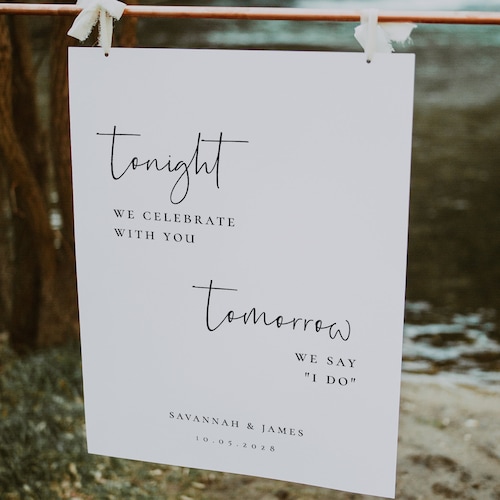 tonight
WE CELEBRATE
WITH YOU
tomorrow
WE SAY
"I DO"
SAVANNAH & JAMES
10.05.2028